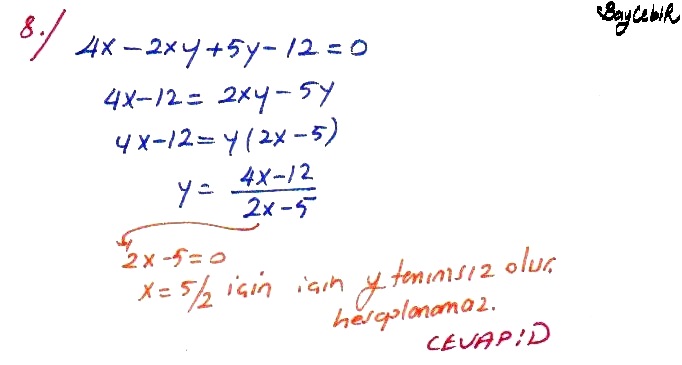 BayCebiR
8./
4x - 2xy + 5y - 12 = 0
4x - 12 = 2xy - 5y
4x - 12 = y(2x - 5)
y = 4x-12 / 2x-5
2x - 5 = 0
x = 5/2 için için y tanımsız olur.
hesaplanamaz.
CEVAP: D